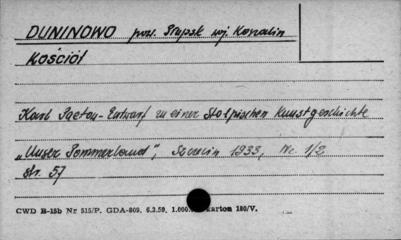 DUNINOWO pow. Słupsk wj. Koszalin
Kościół
Karl Paetow - Entwurf zu einer Stolpischen Kunstgeschichte
"Unser Pommerland", Szczecin 1933, Nr. 1/2
str. 57
CWD B-15b Nr 515/P. GDA-809. 6.2.59. 1.000.000 karton 180/V.